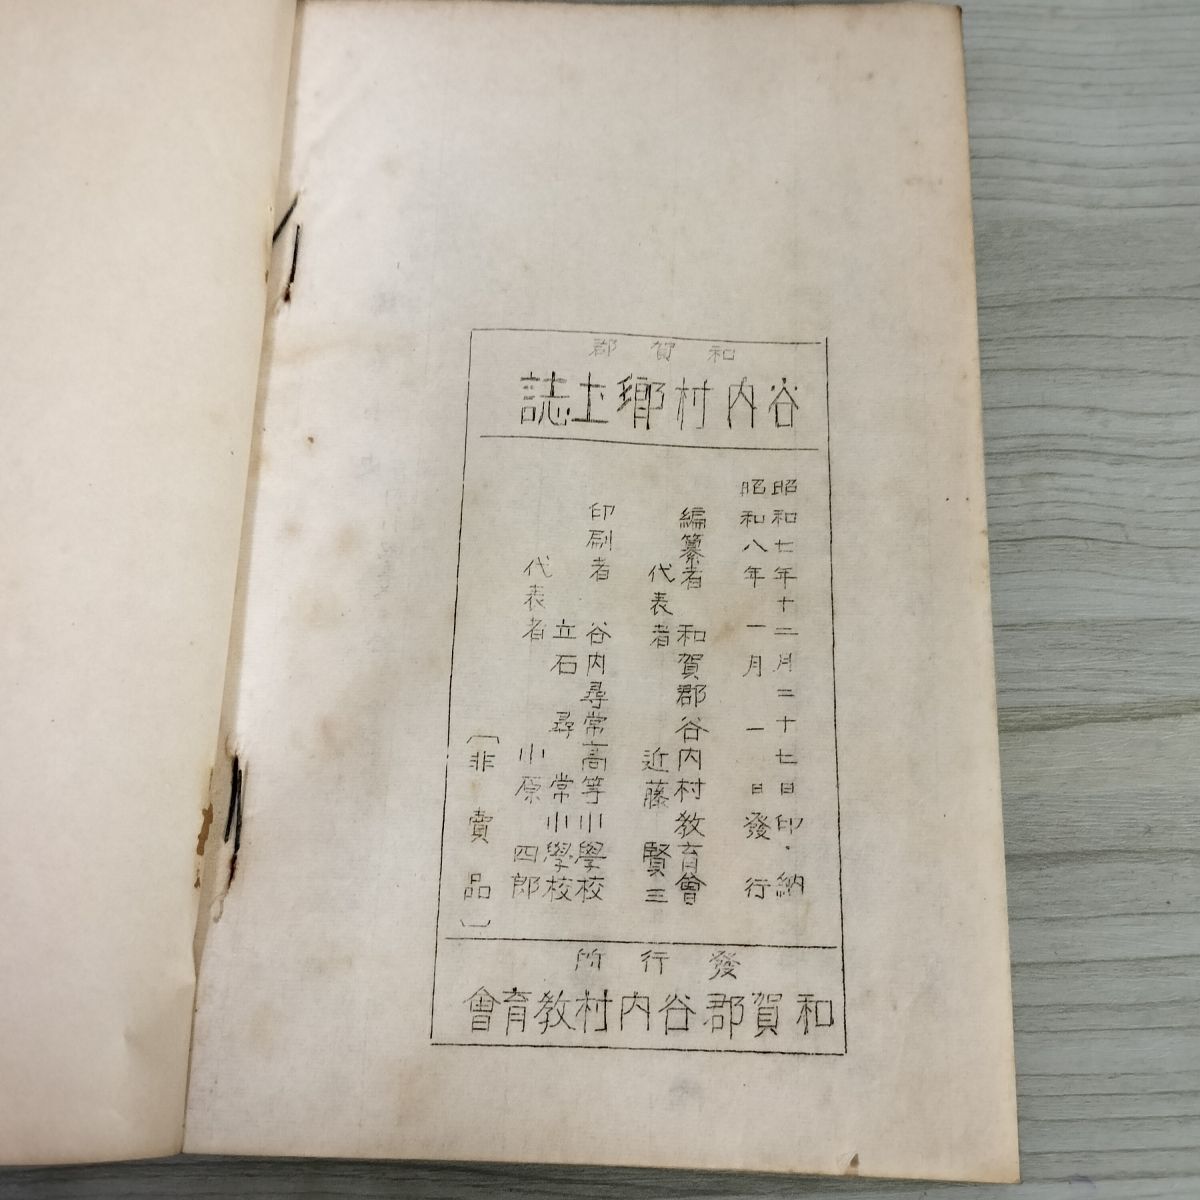 和賀郡
谷内村郷土誌
昭和七年十二月二十七日印・納
昭和八年一月一日發行
編纂者 和賀郡谷内村教育會
代表者 近藤賢三
印刷者 谷内尋常高等小學校
立石尋常小學校
代表者 小原四郎
〔非賣品〕
發行所
和賀郡谷内村教育會